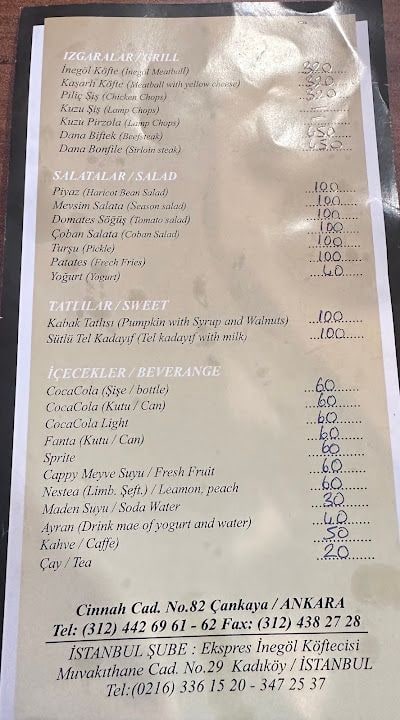 IZGARALAR / GRILL
İnegöl Köfte (İnegöl Meatball) 320
Kaşarlı Köfte (Meatball with yellow cheese) 320
Piliç Şiş (Chicken Chops) 320
Kuzu Şiş (Lamp Chops)
Kuzu Pirzola (Lamp Chops)
Dana Biftek (Beefsteak) 450
Dana Bonfile (Sirloin steak) 450
SALATALAR / SALAD
Piyaz (Haricot Bean Salad) 100
Mevsim Salata (Season salad) 100
Domates Söğüş (Tomato salad) 100
Çoban Salata (Coban Salad) 100
Turşu (Pickle) 100
Patates (Frech Fries) 100
Yoğurt (Yogurt) 40
TATLILAR / SWEET
Kabak Tatlısı (Pumpkin with Syrup and Walnuts) 100
Sütlü Tel Kadayıf (Tel kadayıf with milk) 100
İÇECEKLER / BEVERANGE
CocaCola (Şişe / bottle) 60
CocaCola (Kutu / Can) 60
CocaCola Light 60
Fanta (Kutu / Can) 60
Sprite 60
Cappy Meyve Suyu / Fresh Fruit 60
Nestea (Limb. Şeft.) / Leamon, peach 60
Maden Suyu / Soda Water 30
Ayran (Drink mae of yogurt and water) 40
Kahve / Caffe) 50
Çay / Tea 20
Cinnah Cad. No.82 Çankaya / ANKARA
Tel: (312) 442 69 61 - 62 Fax: (312) 438 27 28
İSTANBUL ŞUBE : Ekspres İnegöl Köftecisi
Muvakıthane Cad. No.29 Kadıköy / İSTANBUL
Tel:(0216) 336 15 20 - 347 25 37